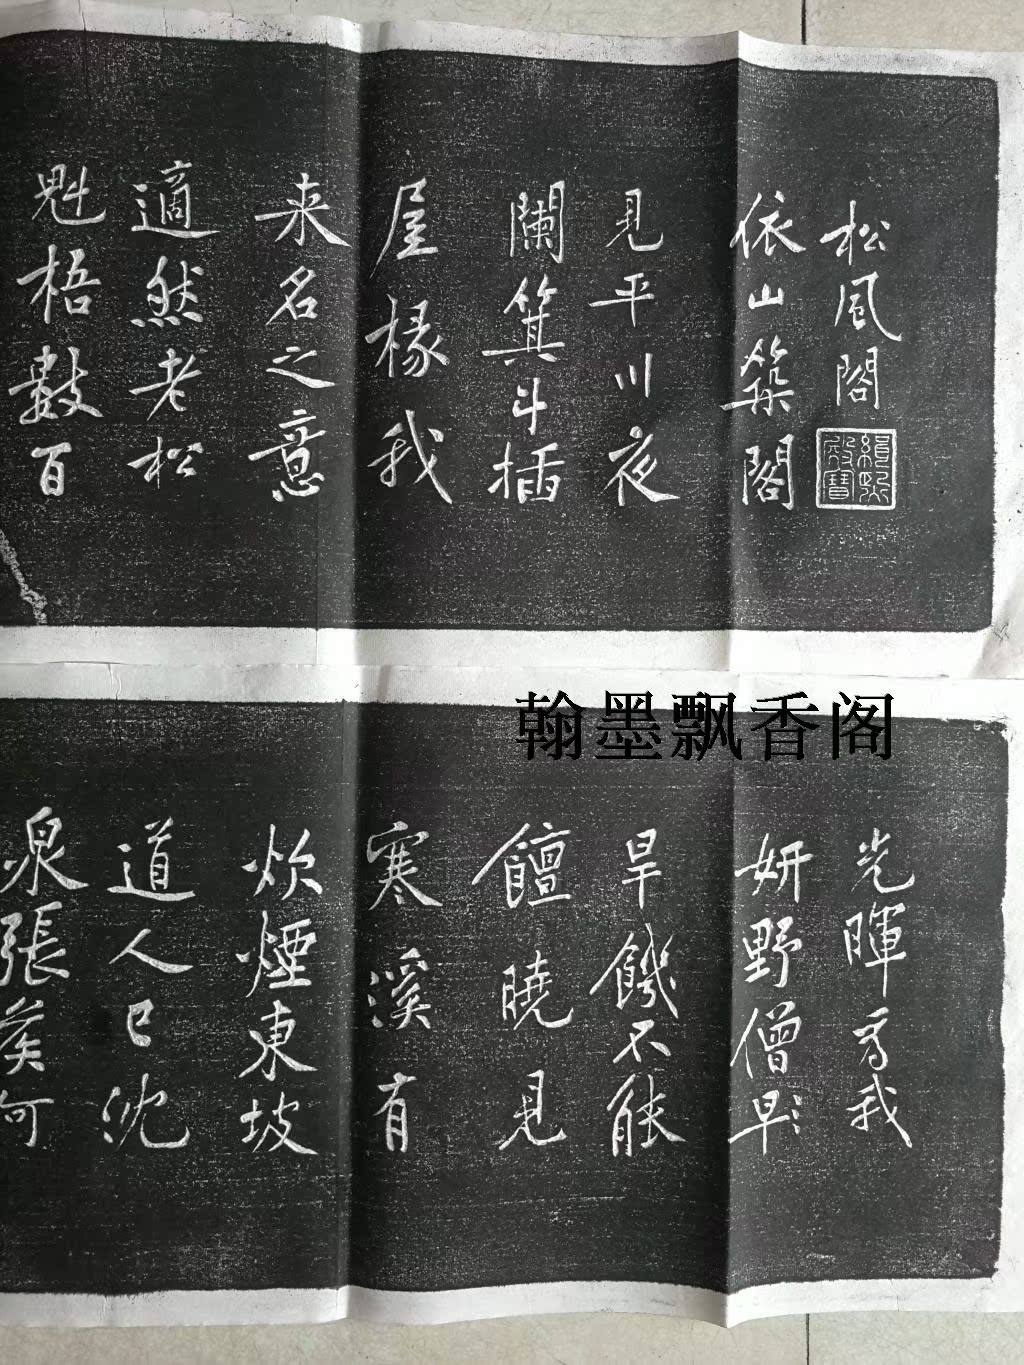 松風閣
緝熙殿寶
依山築閣
見平川夜
闌箕斗插
屋椽我
来名之意
適然老松
魁梧數百
翰墨飘香阁
光暉為我
妍野僧早
旱饑不能
饘曉見
寒溪有
炊煙東坡
道人已沈
泉張侯何